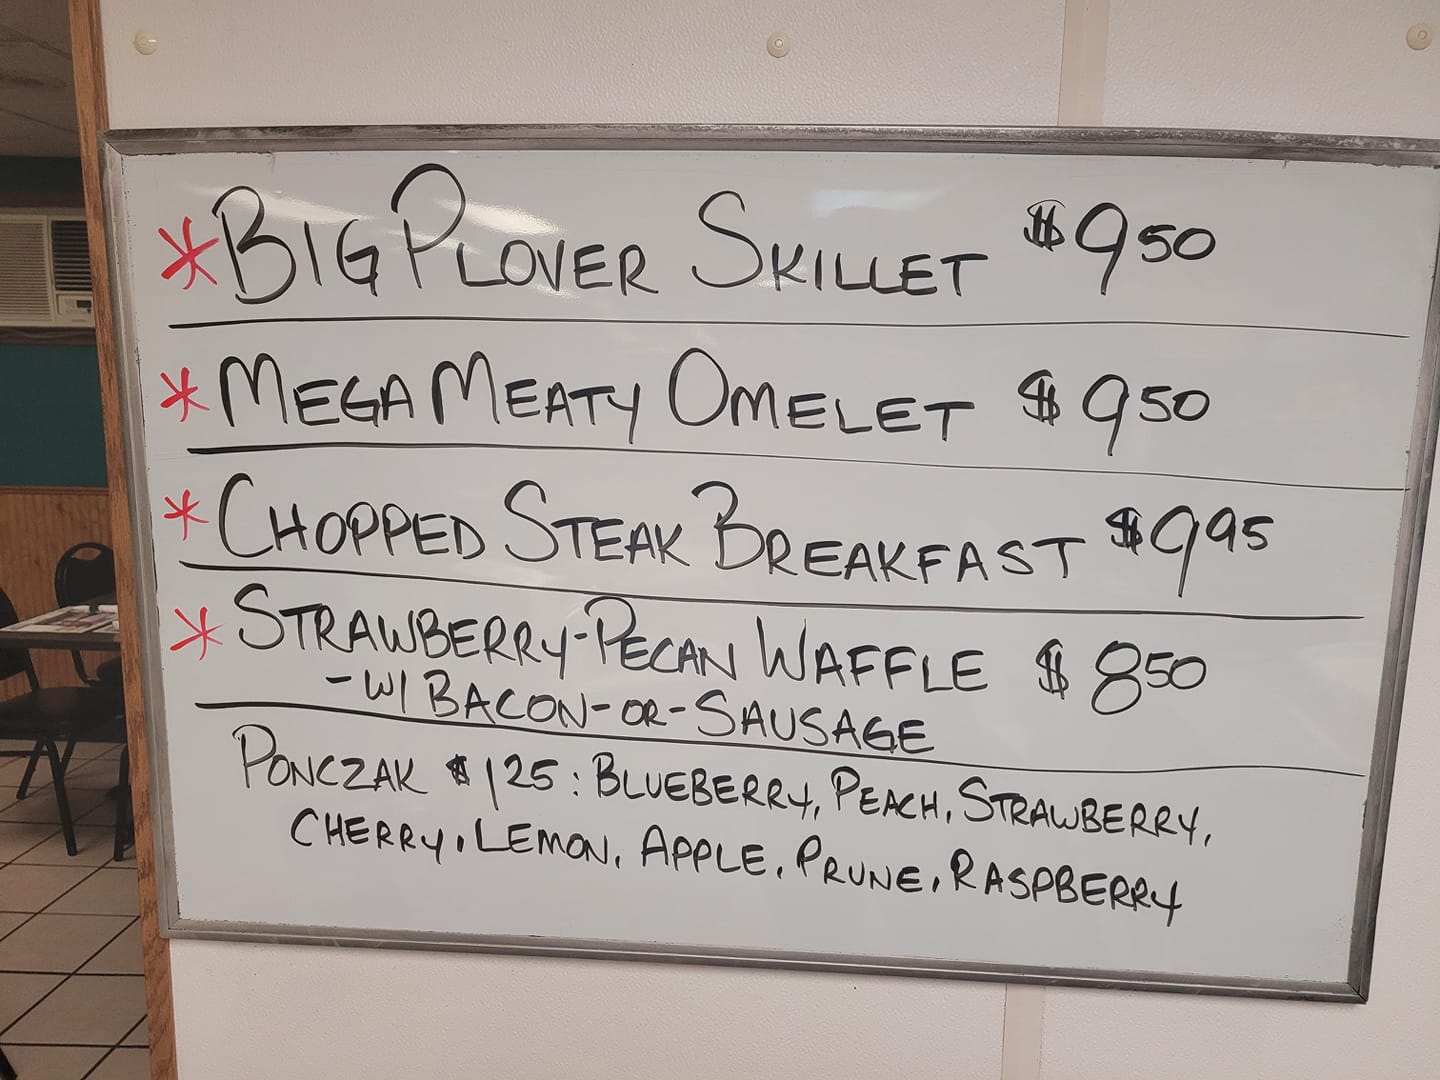 * BIG PLOVER SKILLET $9 50
* MEGA MEATY OMELET $9 50
* CHOPPED STEAK BREAKFAST $9 95
* STRAWBERRY-PECAN WAFFLE $8 50
-W/ BACON-OR-SAUSAGE
PONCZAK $1 25: BLUEBERRY, PEACH, STRAWBERRY,
CHERRY, LEMON, APPLE, PRUNE, RASPBERRY